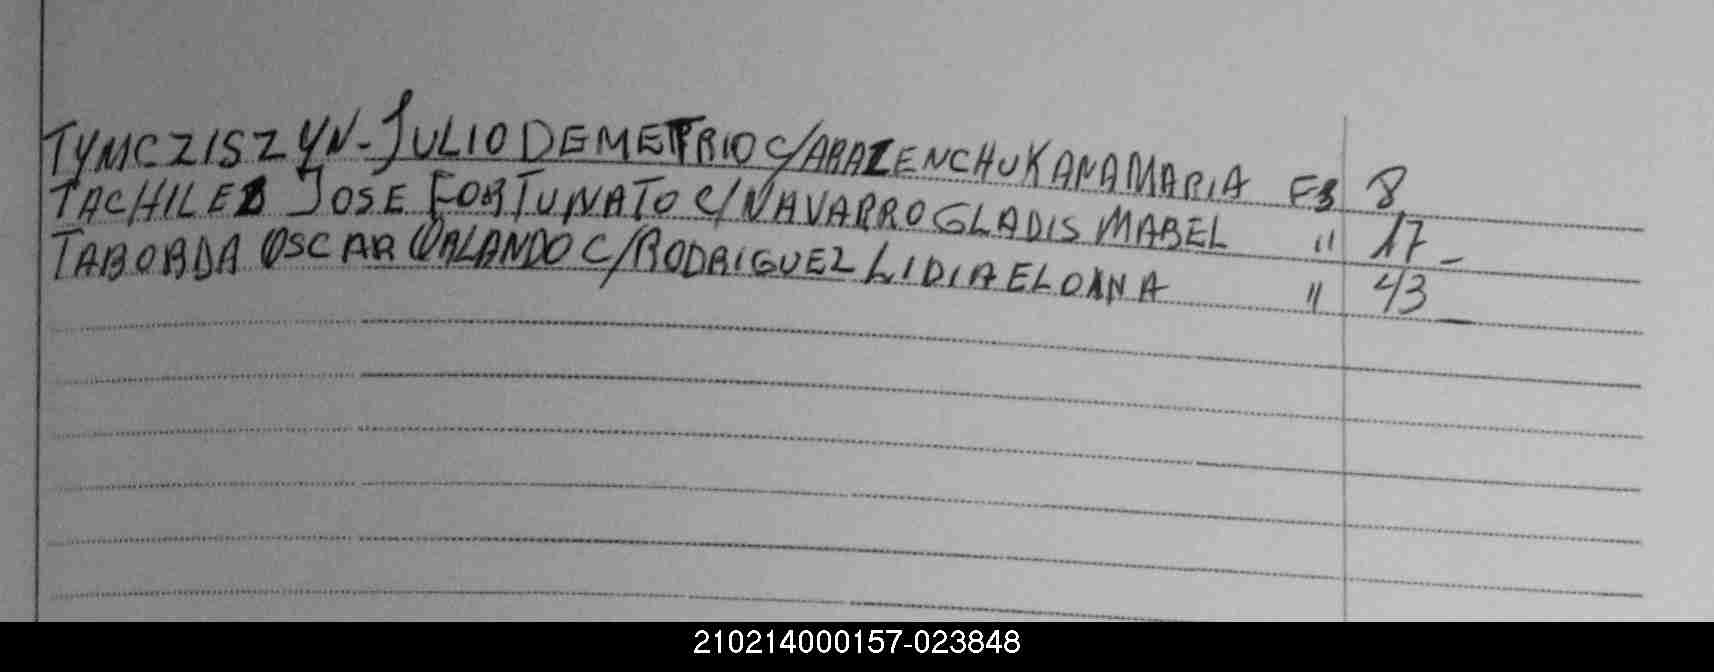 TYMCZISZYN-JULIO DEMETRIO C/ARAZENCHUK ANA MARIA FS 8
TACHILEB JOSE FORTUNATO C/NAVARRO GLADIS MABEL " 17_
TABORDA OSCAR ORLANDO C/RODRIGUEZ LIDIA ELOINA " 43_
210214000157-023848